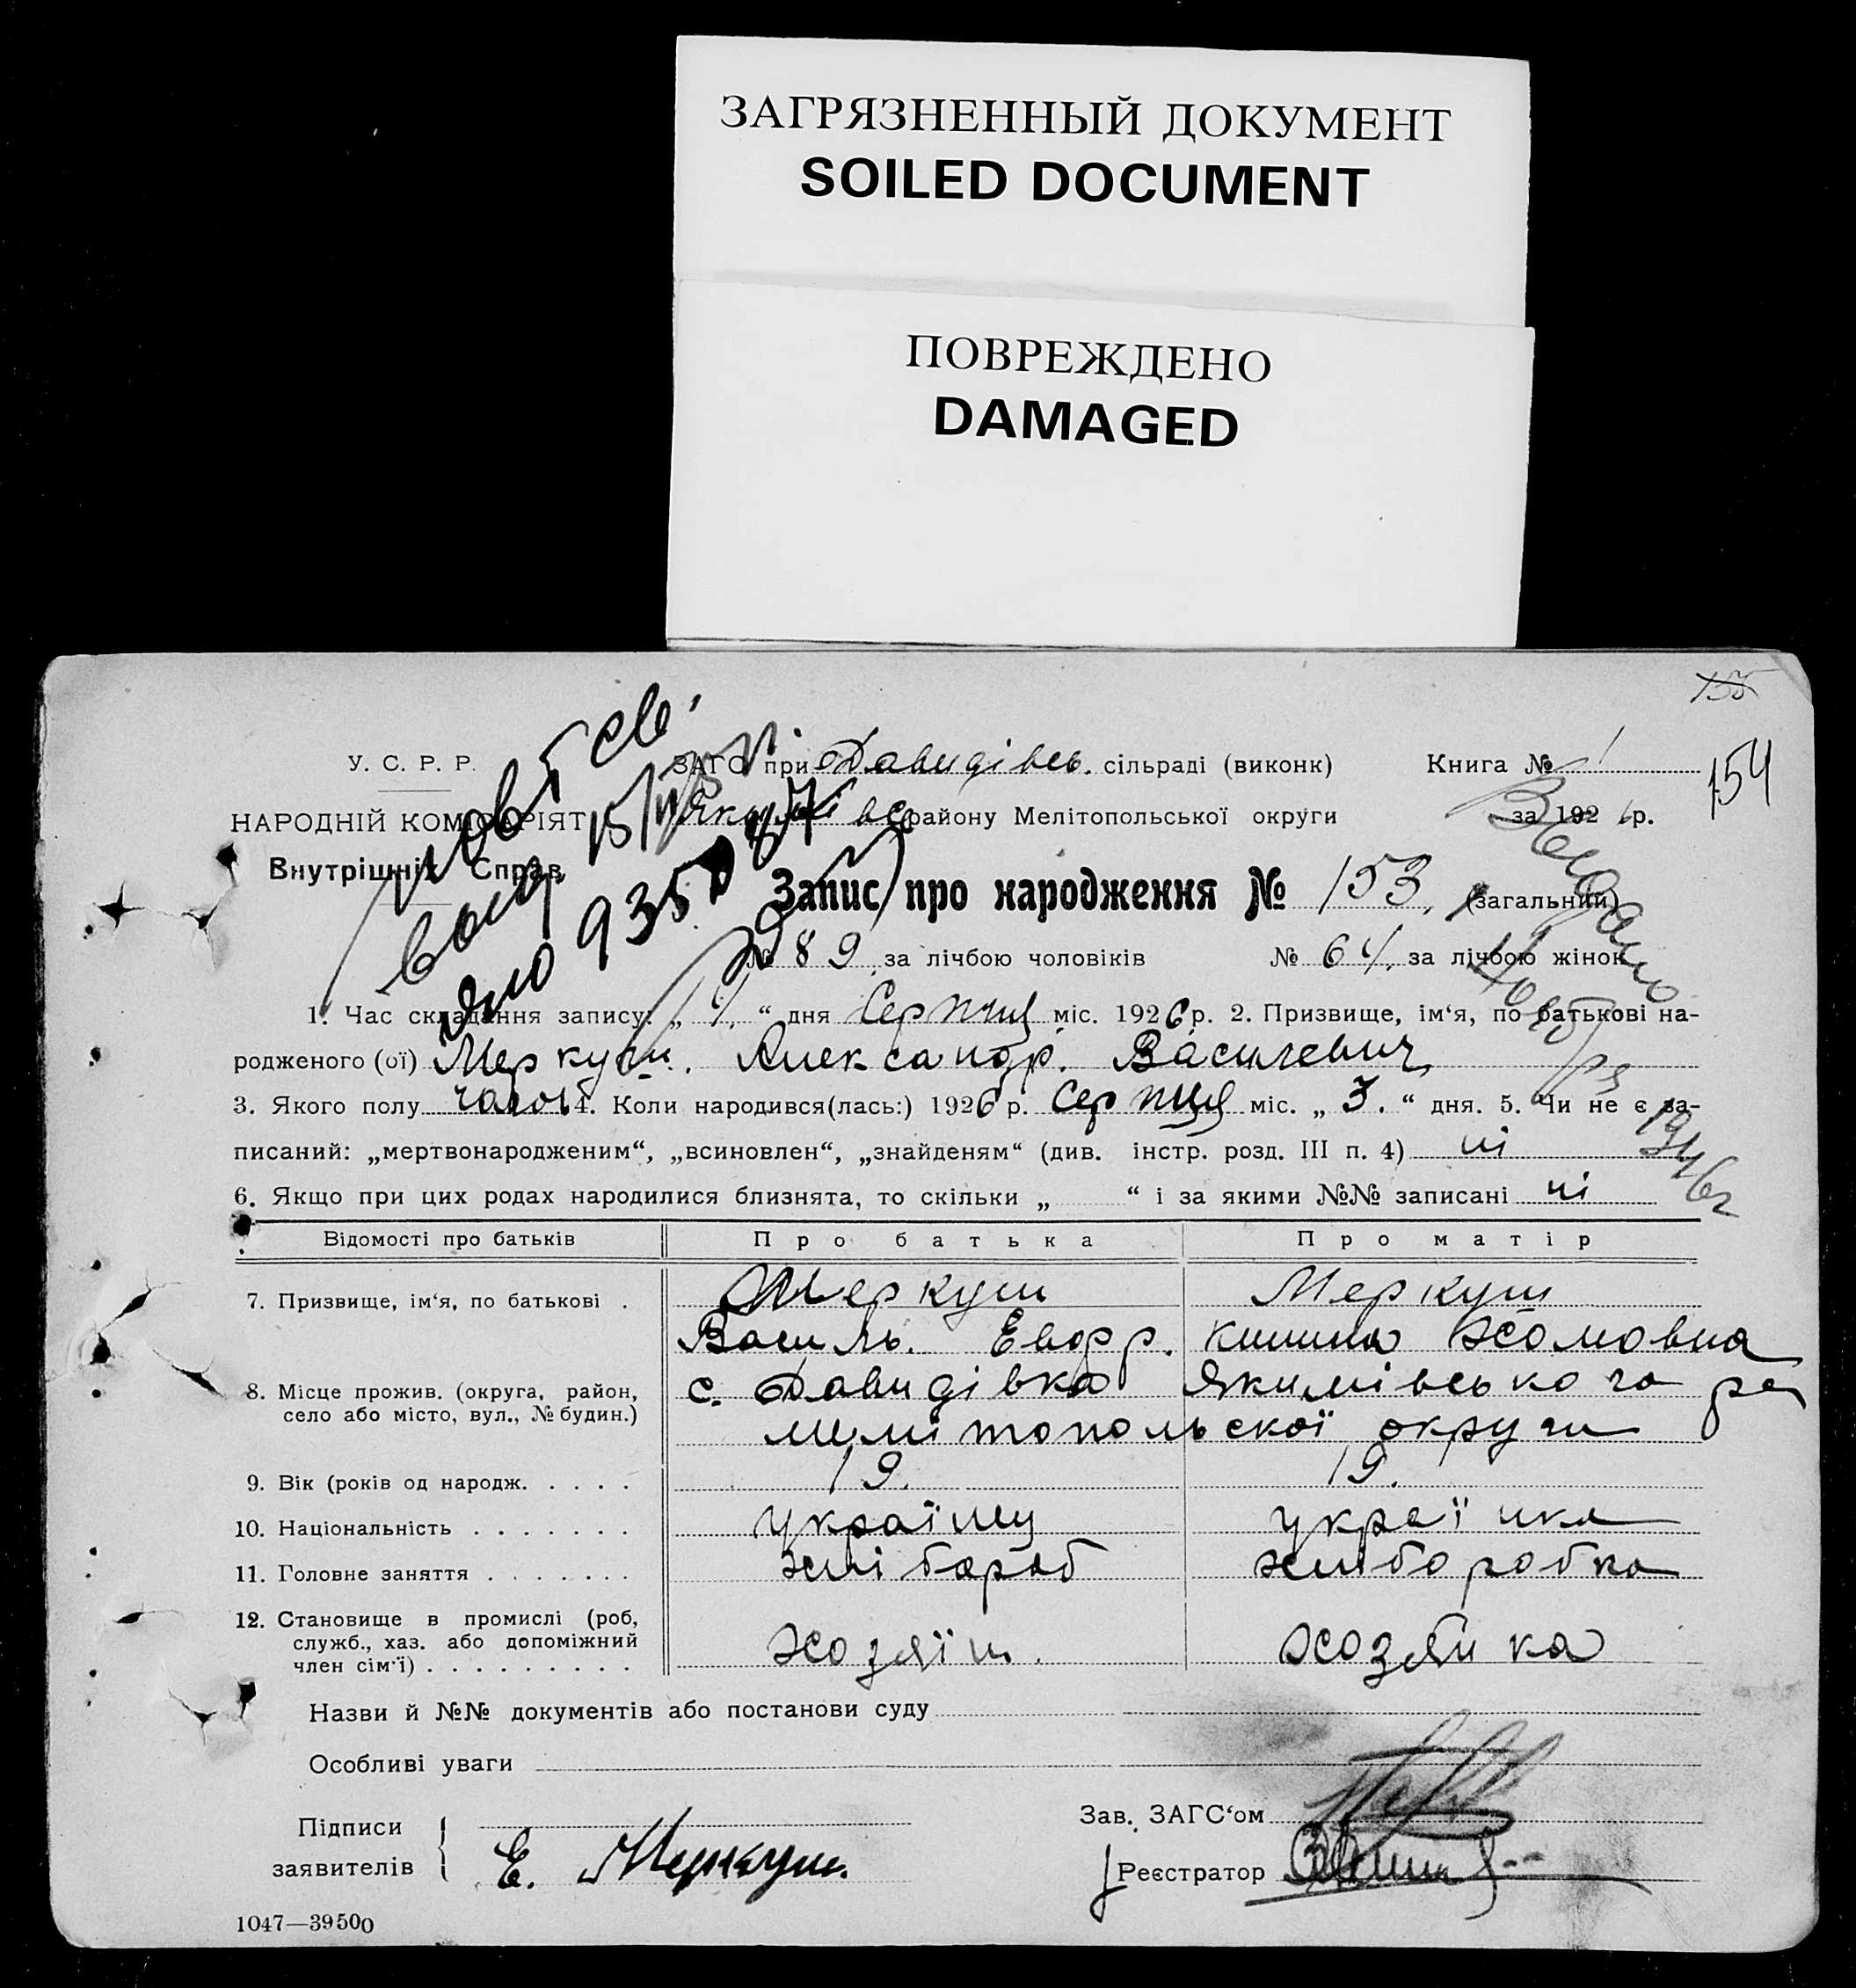 ЗАГРЯЗНЕННЫЙ ДОКУМЕНТ
SOILED DOCUMENT
ПОВРЕЖДЕНО
DAMAGED
155
154
У. С. Р. Р. ЗАГС при Давидівсь. сільраді (виконк) Книга № 1
НАРОДНІЙ КОМІСАРІЯТ району Мелітопольської округи за 1926 р.
Внутрішніх Справ
Запис про народження № 153. (загальний)
№ 89 за лічбою чоловіків № 64. за лічбою жінок
1. Час складання запису: „ 4. “ дня Серпня міс. 1926 р. 2. Призвище, ім‘я, по батькові на-
родженого (ої) Меркуш. Александр. Василевич
3. Якого полу чолов 4. Коли народився(лась:) 1926 р. Серпня міс. „ 3. “ дня. 5. Чи не є за-
писаний: „мертвонародженим“, „всиновлен“, „знайденям“ (див. інстр. розд. III п. 4) ні
6. Якщо при цих родах народилися близнята, то скільки „ “ і за якими №№ записані ні
Відомості про батьків Про батька Про матір
7. Призвище, ім‘я, по батькові . Меркуш Меркуш
Василь. Хомовна
8. Місце прожив. (округа, район, с. Давидівка Якимівського ра
село або місто, вул., № будин.) мелітопольскої округи
9. Вік (років од народж. . . . . 19. 19.
10. Національність . . . . . . . українц українка
11. Головне заняття . . . . . . . хлібороб хліборобка
12. Становище в промислі (роб,
служб., хаз. або допоміжний хозяїн. хозяйка
член сім‘ї) . . . . . . . . .
Назви й №№ документів або постанови суду
Особливі уваги
Підписи Зав. ЗАГС‘ом
заявителів Е. Меркуш. Реєстратор
1047—39500